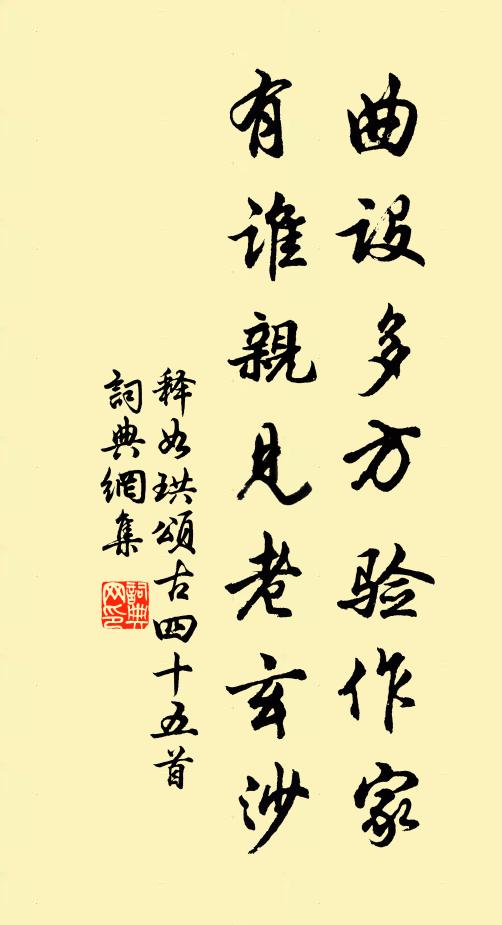 曲设多方验作家
有谁親見老玄沙
释如珙頌古四十五首
詞典網集
詞典网印